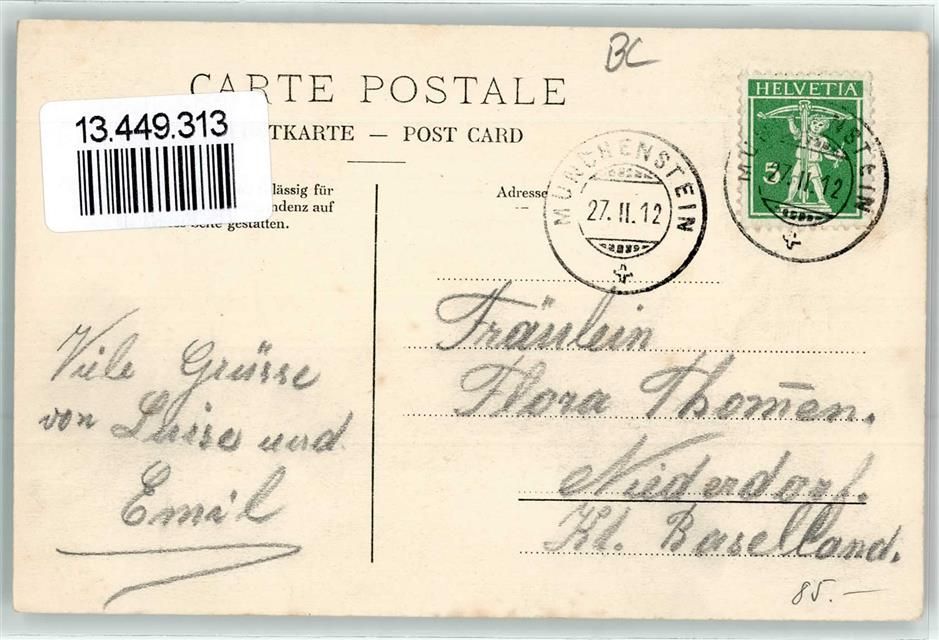 BC
CARTE POSTALE
13.449.313
TKARTE — POST CARD
HELVETIA
5
MÜNCHENSTEIN
27.II.12
MÜNCHENSTEIN
27.II.12
lässig für
ndenz auf
Seite gestatten.
Adresse
Viele Grüsse
von Luise und
Emil
Fräulein
Flora Thom̄en.
Niederdorf.
Kt. Baselland.
85.—